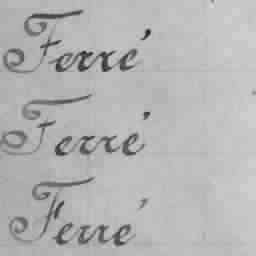 Ferré
Ferré
Ferré